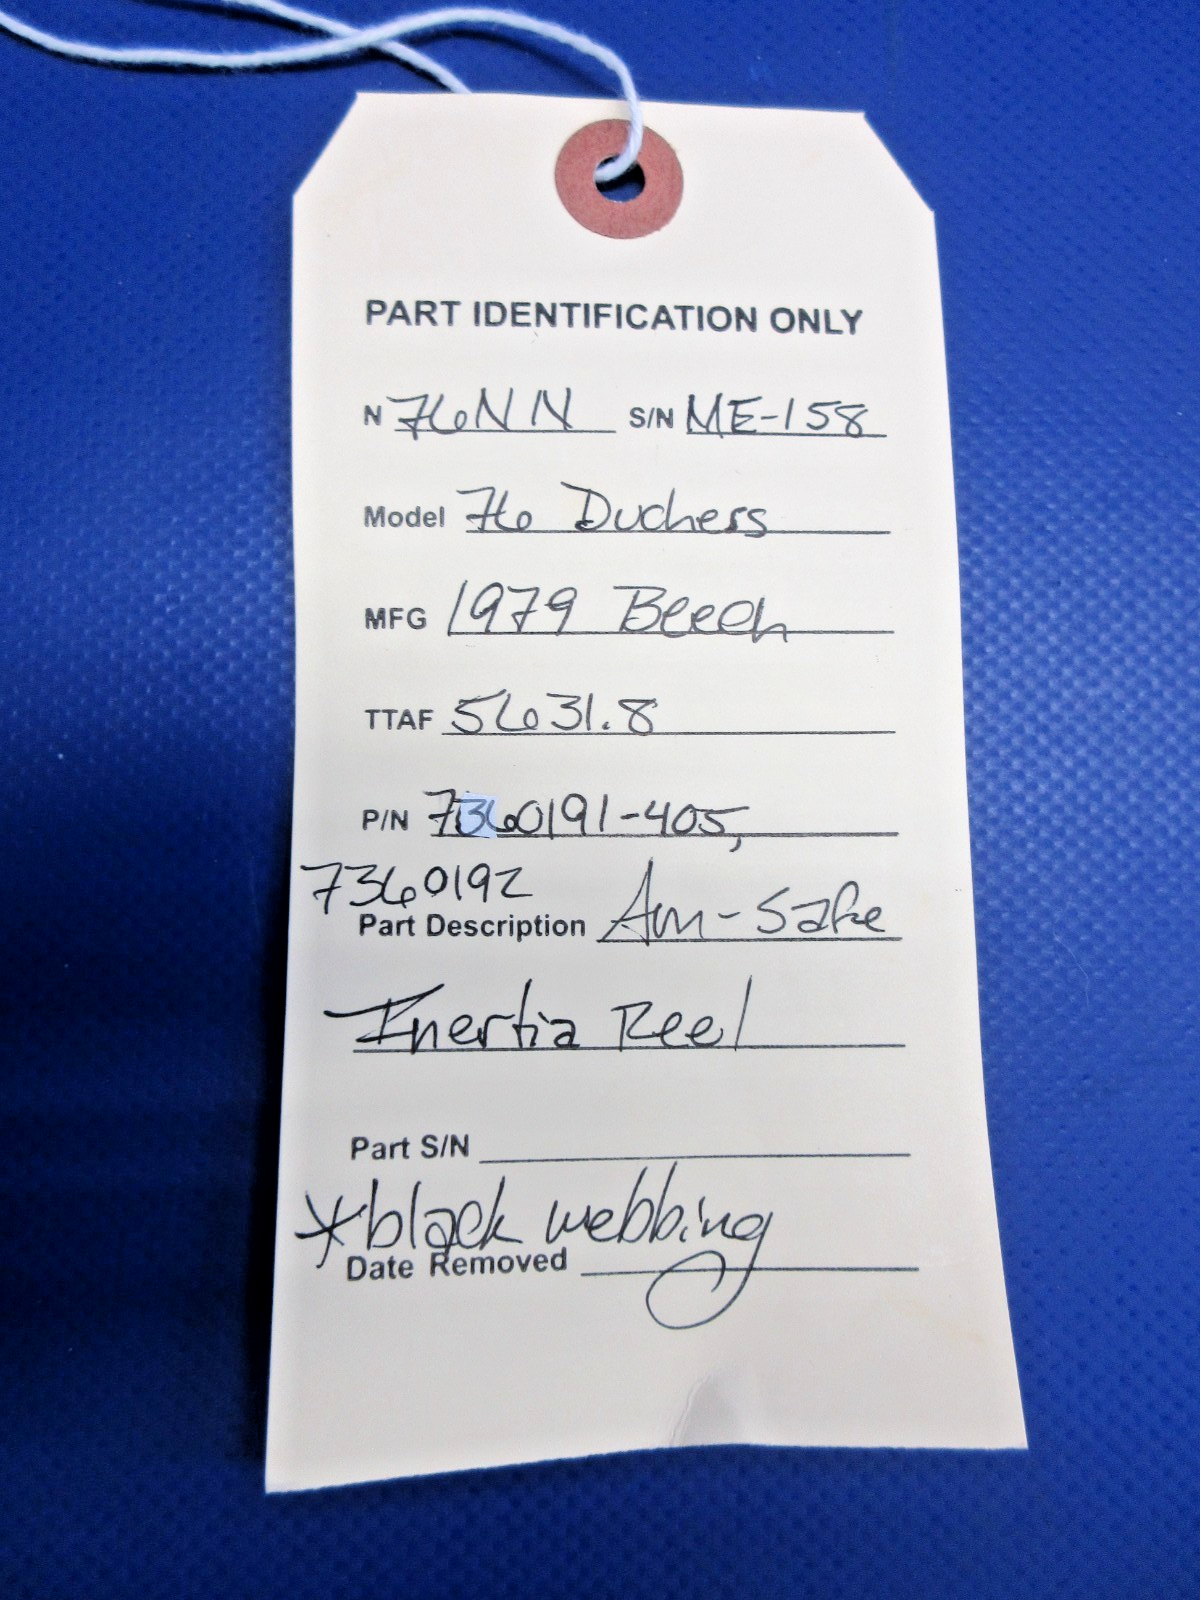 PART IDENTIFICATION ONLY
N 76NN S/N ME-158
Model 76 Duchess
MFG 1979 Beech
TTAF 5631.8
P/N 7360191-405,
7360192
Part Description Am-Safe
Inertia Reel
Part S/N
*black webbing
Date Removed